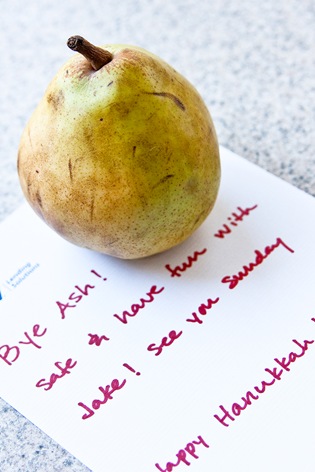 Lending
Solutions
Bye Ash!
safe & have fun with
Jake! See you Sunday
Happy Hanukkah!